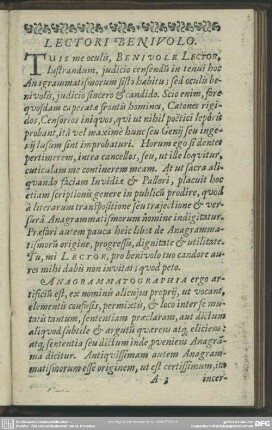 LECTORI BENIVOLO.
TUIS me oculis, BENIVOLE LECTOR,
lustrandum, judicio censendũ in tenui hoc
Anagrammatismorum sisto habitu: sed oculis be-
nivolis, judicio sincero & candido. Scio enim, fore
quosdam caperatæ frontis homines, Catones rigi-
dos, Censores iniquos, qui ut nihil poëtici leporis
probant, ità vel maximè hunc seu Genij seu inge-
nij lusum sint improbaturi. Horum ego si dentes
pertimerem, intra cancellos, seu, ut ille loquitur,
cuticulam me continerem meam. At ut sacra ali-
quando faciam Invidiæ & Pallori, placuit hoc
etiam scriptionis genere in publicũ prodire, quod
à literarum transpositione seu trajectione & ver-
surâ Anagrammatismorum nomine indigitatur.
Præfari autem pauca heic libet de Anagramma-
tismorũ origine, progressu, dignitate & utilitate.
Tu, mi LECTOR, pro benivolo tuo candore au-
res mihi dabis non invitas; quod peto.
ANAGRAMMATOGRAPHIA ergo ar-
tificiũ est, ex nominis alicujus proprij, ut vocant,
elementis confusis, permixtis, & loco inter se mu-
tatis tantum, sententiam præclaram, aut dictum
aliquod subtile & argutũ quærens atq; eliciens:
atq; sententia seu dictum inde proveniens Anagra-
ma dicitur. Antiquissimam autem Anagram-
matismorum esse originem, ut est certissimum, ita
A 3 incer-